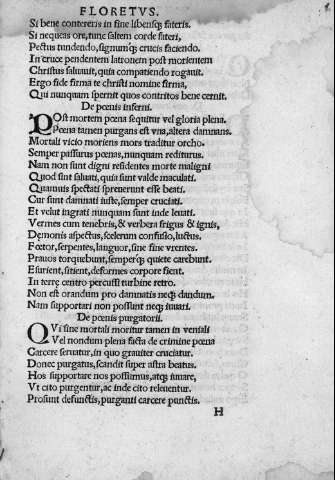 FLORETVS.
Si bene contereris in fine libensq; fateris.
Si nequeas ore, tunc saltem corde fateri,
Pectus tundendo, signumq; crucis faciendo.
In cruce pendentem latronem post morientem
Christus saluauit, quia compatiendo rogauit.
Ergo side firma te christi nomine firma,
Qui nunquam spernit quos contritos bene cernit.
De pœnis inferni.
POst mortem pœna sequitur vel gloria plena.
Pœna tamen purgans est vna, altera damnans.
Mortali vicio moriens mors traditur orcho.
Semper passurus pœnas, nunquam rediturus.
Nam non sunt digni residentes morte maligni
Quod sint saluati, quia sunt valde maculati.
Quamuis spectati spreuerunt esse beati.
Cur sunt damnati iuste, semper cruciati.
Et velut ingrati nunquam sunt inde leuati.
Vermes cum tenebris, & verbera frigus & ignis,
Demonis aspectus, scelerum confusio, luctus.
Fœtor, serpentes, languor, sine fine vrentes.
Prauos torquebunt, semperq; quiete carebunt.
Esurient, sitient, deformes corpore fient.
In terre centro percussi turbine retro.
Non est orandum pro damnatis neq; dandum.
Nam supportari non possunt neq; iuuari.
De pœnis purgatorii.
QVi sine mortali moritur tamen in veniali
Vel nondum plena facta de crimine pœna
Carcere seruatur, in quo grauiter cruciatur.
Donec purgatus, scandit super astra beatus.
Hos supportare nos possumus, atq; iuuare,
Vt cito purgentur, ac inde cito releuentur.
Prosunt defunctis, purganti carcere punctis.
H